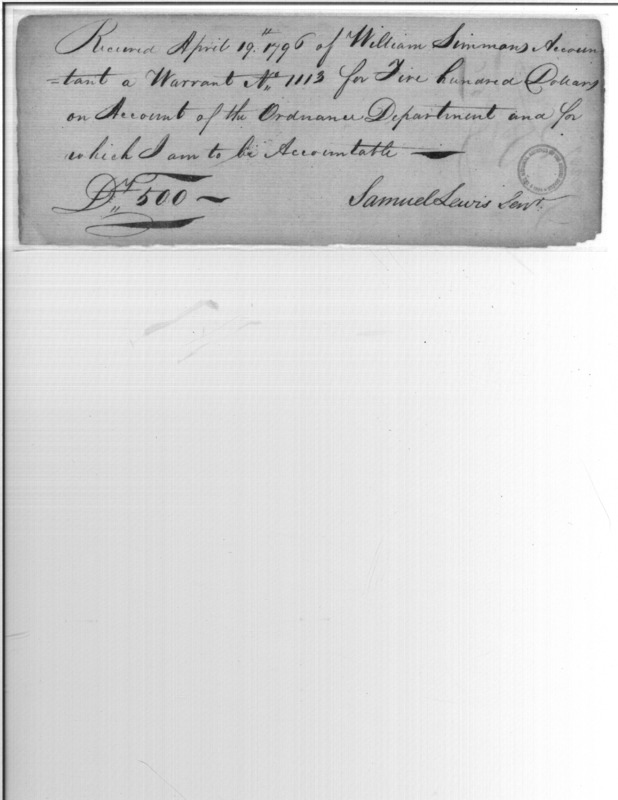 Received April 19.th 1796 of William Simmons Accoun
=tant a Warrant No. 1113 for Five hundred Dollars
on Account of the Ordnance Department and for
which I am to be Accountable —
Ds 500 ~
Samuel Lewis Senr.